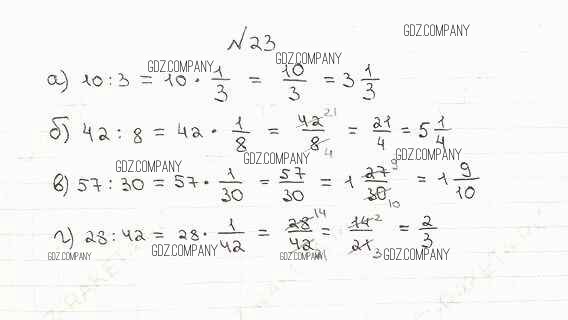 № 23
GDZ.COMPANY
GDZ.COMPANY GDZ.COMPANY
а) 10 : 3 = 10 · 1/3 = 10/3 = 3 1/3
б) 42 : 8 = 42 · 1/8 = 42 21/8 4 = 21/4 = 5 1/4
GDZ.COMPANY GDZ.COMPANY GDZ.COMPANY
в) 57 : 30 = 57 · 1/30 = 57/30 = 1 27 9/30 10 = 1 9/10
г) 28 : 42 = 28 · 1/42 = 28 14/42 21 = 14 2/21 3 = 2/3
GDZ.COMPANY GDZ.COMPANY GDZ.COMPANY GDZ.COMPANY